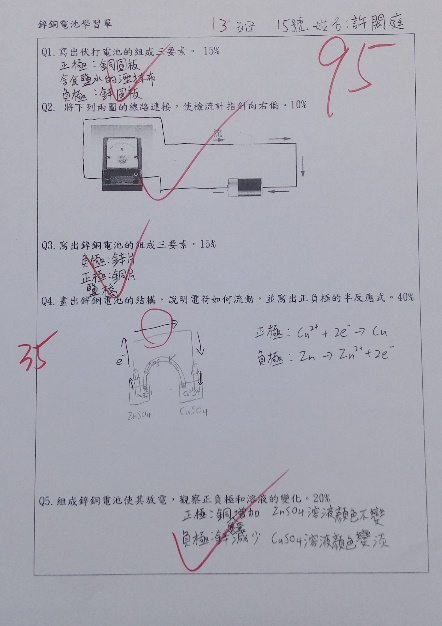 鋅銅電池學習單 13班 15號 姓名:許閎庭
95
Q1. 寫出伏打電池的組成三要素。15%
正極:銅圓板
含食鹽水的濕抹布
負極:鋅圓板
Q2. 將下列兩圖的線路連接,使檢流計指針向右偏。10%
Q3. 寫出鋅銅電池的組成三要素。15%
負極:鋅片
正極:銅片
鹽橋
Q4. 畫出鋅銅電池的結構,說明電荷如何流動,並寫出正負極的半反應式。40%
35
正極:Cu²⁺ + 2e⁻ → Cu
負極:Zn → Zn²⁺ + 2e⁻
e⁻
ZnSO₄ CuSO₄
Q5. 組成鋅銅電池使其放電,觀察正負極和溶液的變化。20%
正極:銅增加 ZnSO₄溶液顏色不變
負極:鋅減少 CuSO₄溶液顏色變淡